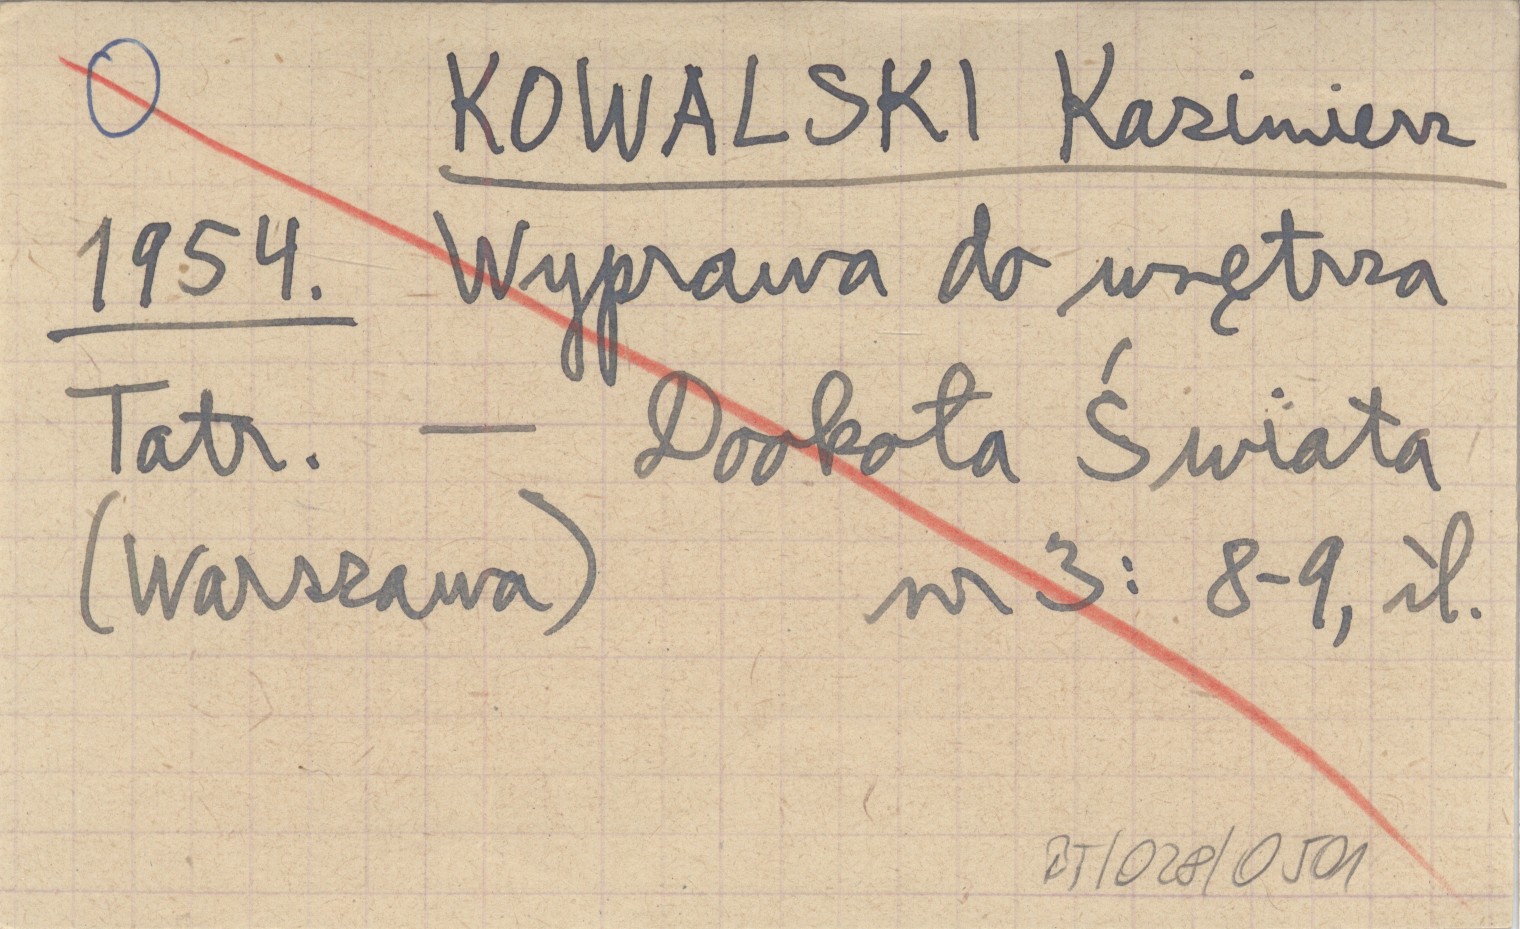 KOWALSKI Kazimierz
1954. Wyprawa do wnętrza
Tatr. — Dookoła Świata
(Warszawa) nr 3: 8-9, il.
BT/028/0501